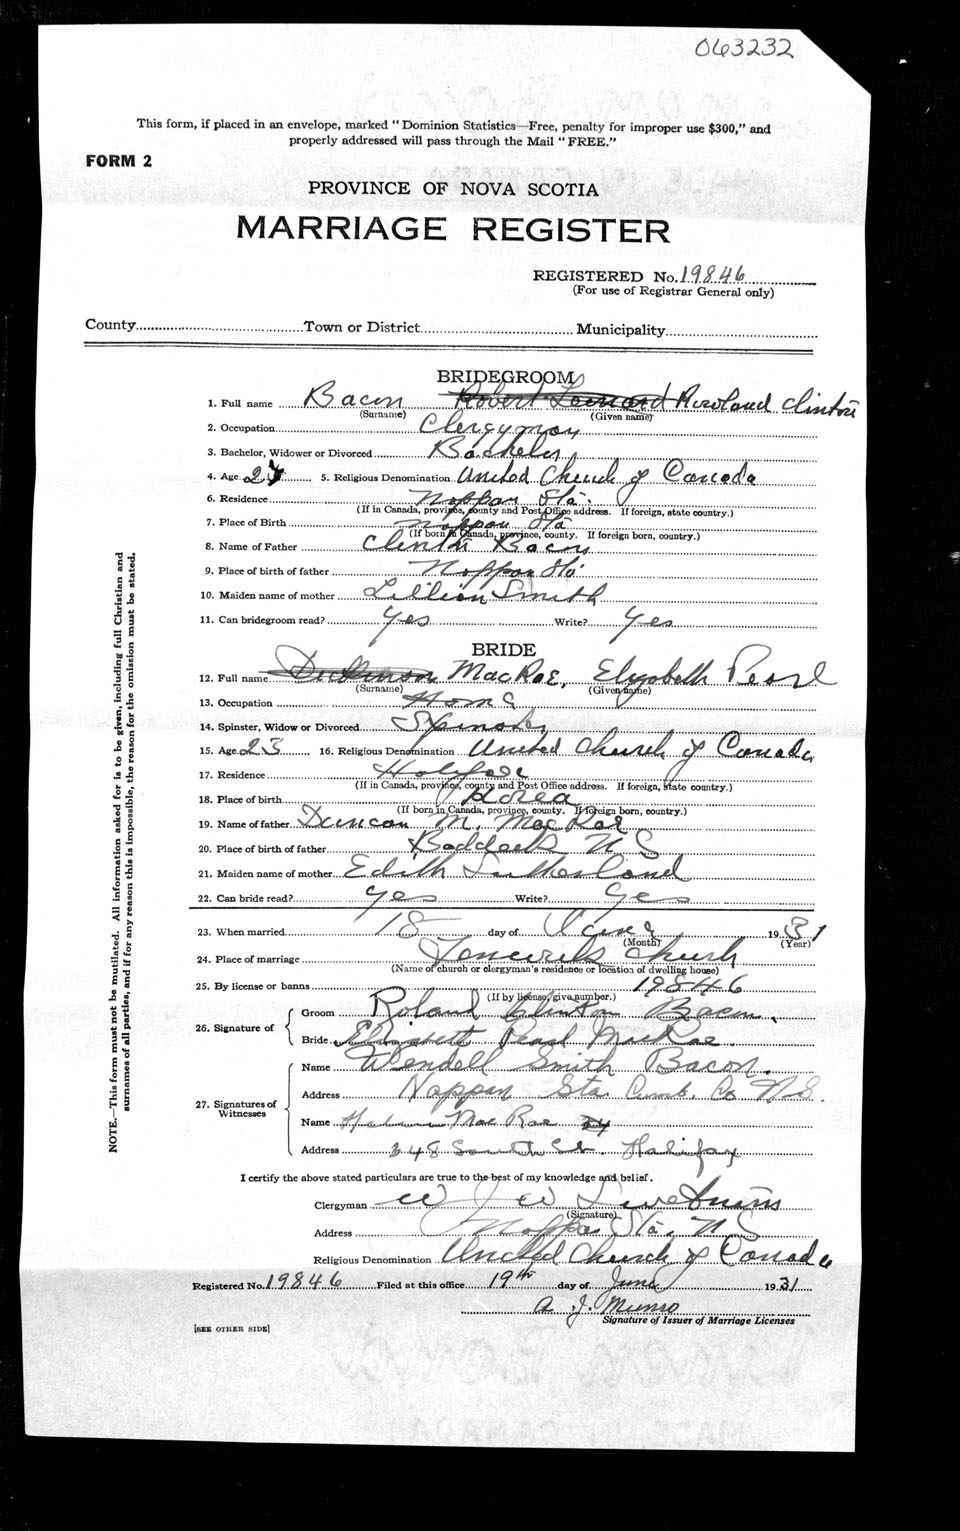 063232
This form, if placed in an envelope, marked "Dominion Statistics—Free, penalty for improper use $300," and
properly addressed will pass through the Mail "FREE."
FORM 2
PROVINCE OF NOVA SCOTIA
MARRIAGE REGISTER
REGISTERED No. 19846
(For use of Registrar General only)
County Town or District Municipality
BRIDEGROOM
1. Full name Bacon Robert Leonard Rowland Clinton
(Surname) (Given name)
2. Occupation Clergyman
3. Bachelor, Widower or Divorced Bachelor
4. Age 5. Religious Denomination United Church of Canada
6. Residence Nappan Sta.
(If in Canada, province, county and Post Office address. If foreign, state country.)
7. Place of Birth Nappan Sta
(If born in Canada, province, county. If foreign born, country.)
8. Name of Father Clinton Bacon
9. Place of birth of father Nappan Sta
10. Maiden name of mother Lillian Smith
11. Can bridegroom read? Yes Write? Yes
BRIDE
12. Full name Dickinson MacRae, Elizabeth Pearl
(Surname) (Given name)
13. Occupation Home
14. Spinster, Widow or Divorced Spinster
15. Age 23 16. Religious Denomination United Church of Canada
17. Residence Halifax
(If in Canada, province, county and Post Office address. If foreign, state country.)
18. Place of birth Korea
(If born in Canada, province, county. If foreign born, country.)
19. Name of father Duncan M. MacRae
20. Place of birth of father Baddeck N S
21. Maiden name of mother Edith Sutherland
22. Can bride read? yes Write? yes
23. When married 18 day of June 1931
(Month) (Year)
24. Place of marriage Church
(Name of church or clergyman's residence or location of dwelling house)
25. By license or banns 19846
(If by license, give number.)
26. Signature of Groom Roland Clinton Bacon.
Bride Elizabeth Pearl MacRae
27. Signatures of Witnesses Name Wendell Smith Bacon.
Address Nappan Sta. Cumb. Co N.S.
Name MacRae
Address 348 South St. Halifax
I certify the above stated particulars are true to the best of my knowledge and belief.
Clergyman W
(Signature)
Address Nappan Sta, N S
Religious Denomination United Church of Canada
Registered No. 19846 Filed at this office 19th day of June 1931
A. J. Munro
Signature of Issuer of Marriage Licenses
[SEE OTHER SIDE]
NOTE.—This form must not be mutilated. All information asked for is to be given, including full Christian and
surnames of all parties, and if for any reason this is impossible, the reason for the omission must be stated.